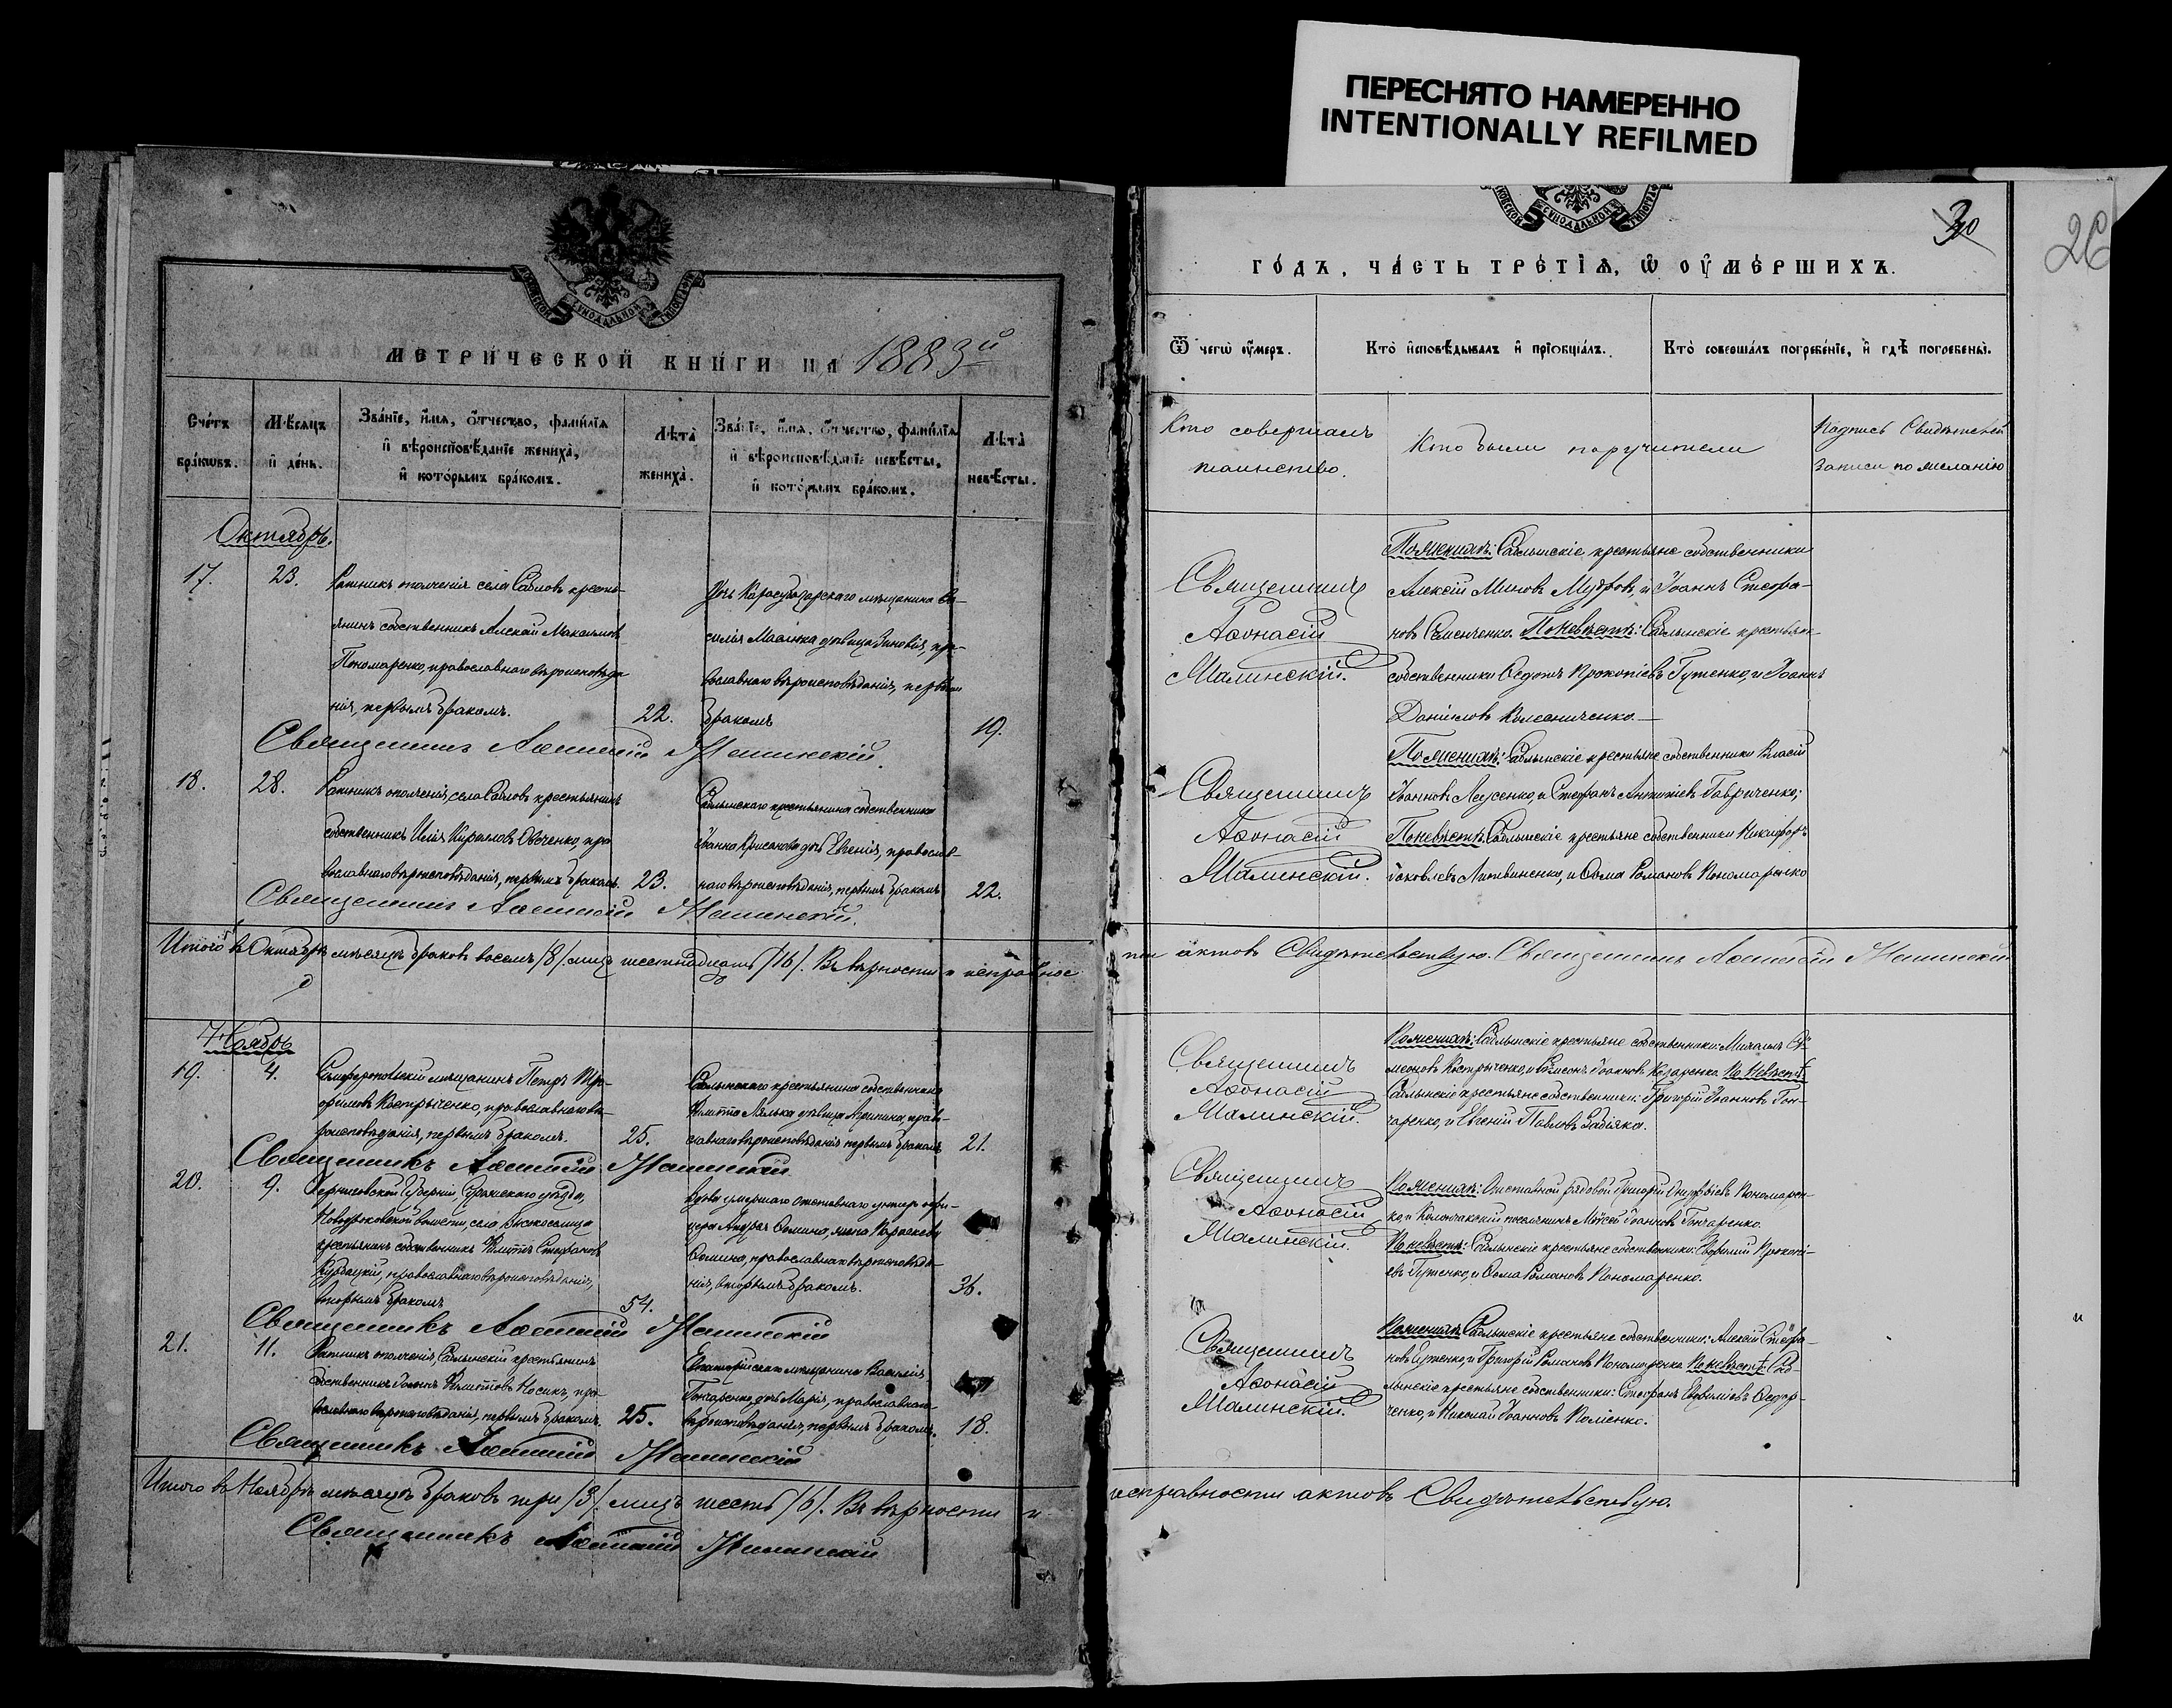 ПЕРЕСНЯТО НАМЕРЕННО
INTENTIONALLY REFILMED
МОСКОВСКОЙ СИНОДАЛЬНОЙ ТИПОГРАФІИ
МЕТРИ́ЧЕСКОЙ КНИ́ГИ НА 1883й
Сче́тъ
бра́кѡвъ.
Мѣ́сяцъ
и҆ де́нь.
Зва́нїе, и҆́мѧ, ѻ҆́тчество, фамилїѧ
и҆ вѣроисповѣ́данїе жениха̀,
и҆ кото́рымъ бра́комъ.
Лѣта̀
жениха̀.
Зва́нїе, и҆́мѧ, ѻ҆́тчество, фамилїѧ
и҆ вѣроисповѣ́данїе невѣ́сты,
и҆ кото́рымъ бра́комъ.
Лѣта̀
невѣ́сты.
Октябрь.
17.
23.
Ратникъ ополченія села Саблов кресть-
янинъ собственникъ Алексій Максимовъ
Пономаренко, православнаго вѣроисповѣда
нія, первымъ бракомъ.
22.
Дочь Карасубазарскаго мѣщанина Ва-
силія Маслюка дѣвица Зиновія, пра-
вославнаго вѣроисповѣданія, первымъ
бракомъ
19.
Священникъ Аѳанасій Малинскій.
18.
28.
Ратникъ ополченія, села Саблов крестьянинъ
собственникъ Илія Кириллов Овченко, пра
вославнаго вѣроисповѣданія, первымъ бракомъ.
23.
Саблынскаго крестьянина собственника
Іоанна дочь Евгенія, православ-
наго вѣроисповѣданія, первымъ бракомъ
22.
Священникъ Аѳанасій Малинскій.
Итого въ Октябрѣ мѣсяцѣ браковъ восемь /8/. лицъ шестнадцать /16/. Въ вѣрности и исправнос
Ноябрь
19.
4.
Симферопольскій мѣщанинъ Петръ Тро-
фимовъ Костриченко, православнаго вѣ-
роисповѣданія, первымъ бракомъ.
25.
Саблынскаго крестьянина собственника
дѣвица Агрипина, прав-
славнаго вѣроисповѣданія первымъ бракомъ
21.
Священникъ Аѳанасій Малинскій
20.
9.
Черниговской Губерніи, Суражскаго уѣзда,
волости, села
крестьянинъ собственникъ Стефановъ
православнаго вѣроисповѣданія,
вторымъ бракомъ
54.
Вдова умершаго отставнаго унтеръ офи-
цера Андрея Ѳомина, жена Параскева
Ѳомина, православнаго вѣроисповѣда-
нія, вторымъ бракомъ.
36.
Священникъ Аѳанасій Малинскій
21.
11.
Ратникъ ополченія, Саблынскій крестьянинъ
собственникъ Іоаннъ Носикъ, пра-
вославнаго вѣроисповѣданія, первымъ бракомъ.
25.
Евпаторійскаго мѣщанина Василія
Гончаренко, дочь Марія, православнаго
вѣроисповѣданія, первымъ бракомъ.
18.
Священникъ Аѳанасій Малинскій
Итого въ Ноябрѣ мѣсяцѣ браковъ три /3/. лицъ шесть /6/. Въ вѣрности и
Священникъ Аѳанасій Малинскій
30
26
МОСКОВСКОЙ СИНОДАЛЬНОЙ ТИПОГРАФІИ
ГО́ДЪ, ЧА́СТЬ ТРЕ́ТЇѦ, Ѡ҆ ОУ҆МЕ́РШИХЪ.
Ѿ чегѡ̀ оу҆́меръ.
Кто̀ и҆сповѣ́дывалъ и҆ прїѡбща́лъ.
Кто̀ соверша́лъ погребе́нїе, и҆ гдѣ̀ погребены̀.
Кто совершалъ
таинство.
Кто были поручители
Подпись Свидѣтелей
записи по желанію
Священникъ
Аѳонасій
Малинскій.
По женихѣ: Саблынскіе крестьяне собственники
Алексій Миновъ Мудровъ, и Іоаннъ Стефа-
новъ Семенченко. По невѣстѣ: Саблынскіе крестьяне
собственники Ѳедотъ Прокопіевъ Гутенко, и Іоаннъ
Даніиловъ Колесниченко.
Священникъ
Аѳонасій
Малинскій.
По женихѣ: Саблынскіе крестьяне собственники Власій
Іоанновъ Лысенко, и Стефанъ Антоніевъ Гавриченко;
По невѣстѣ: Саблынскіе крестьяне собственники Никифоръ
Іаковлевъ Литвиненко, и Ѳома Романовъ Пономаренко
ти актовъ Свидѣтельствую. Священникъ Аѳанасій Малинскій
Священникъ
Аѳонасій
Малинскій.
По женихѣ: Саблынскіе крестьяне собственники: Михаилъ Си-
меоновъ Костриченко, и Самсонъ Іоанновъ Назаренко. По невѣстѣ
Саблынскіе крестьяне собственники: Григорій Іоанновъ Гон-
чаренко, и Евгеній Павловъ Забіяка.
Священникъ
Аѳонасій
Малинскій.
По женихѣ: Отставной рядовой Григорій Онуфріевъ Пономарен-
ко, и поселянинъ Мойсей Іоанновъ Гончаренко.
По невѣстѣ: Саблынскіе крестьяне собственники: Евфимій Прокопі-
евъ Гутенко, и Ѳома Романовъ Пономаренко.
Священникъ
Аѳонасій
Малинскій.
По женихѣ: Саблынскіе крестьяне собственники: Алексій Стефа-
новъ Гутенко, и Григорій Романовъ Пономаренко. По невѣстѣ: Саб
лынскіе крестьяне собственники: Стефанъ Евфиміевъ Ѳедор-
ченко, и Николай Іоанновъ
исправности актовъ Свидѣтельствую.